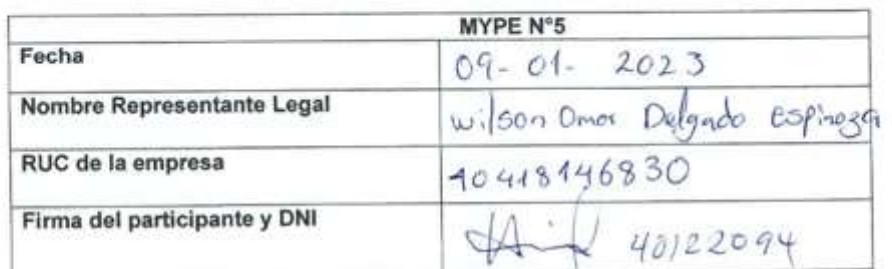 MYPE N°5
Fecha 09-01-2023
Nombre Representante Legal Wilson Omar Delgado Espinoza
RUC de la empresa 10418146830
Firma del participante y DNI 40122094